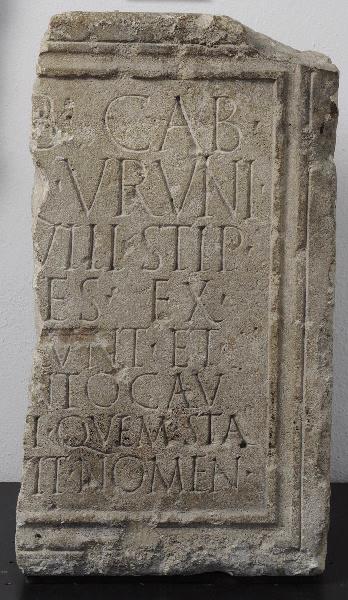 B · CAB ·
VRVNI ·
VIII · STIP ·
ES · EX ·
VNT · ET
ITO CAV
I · QVEM · STA
IT · NOMEN ·